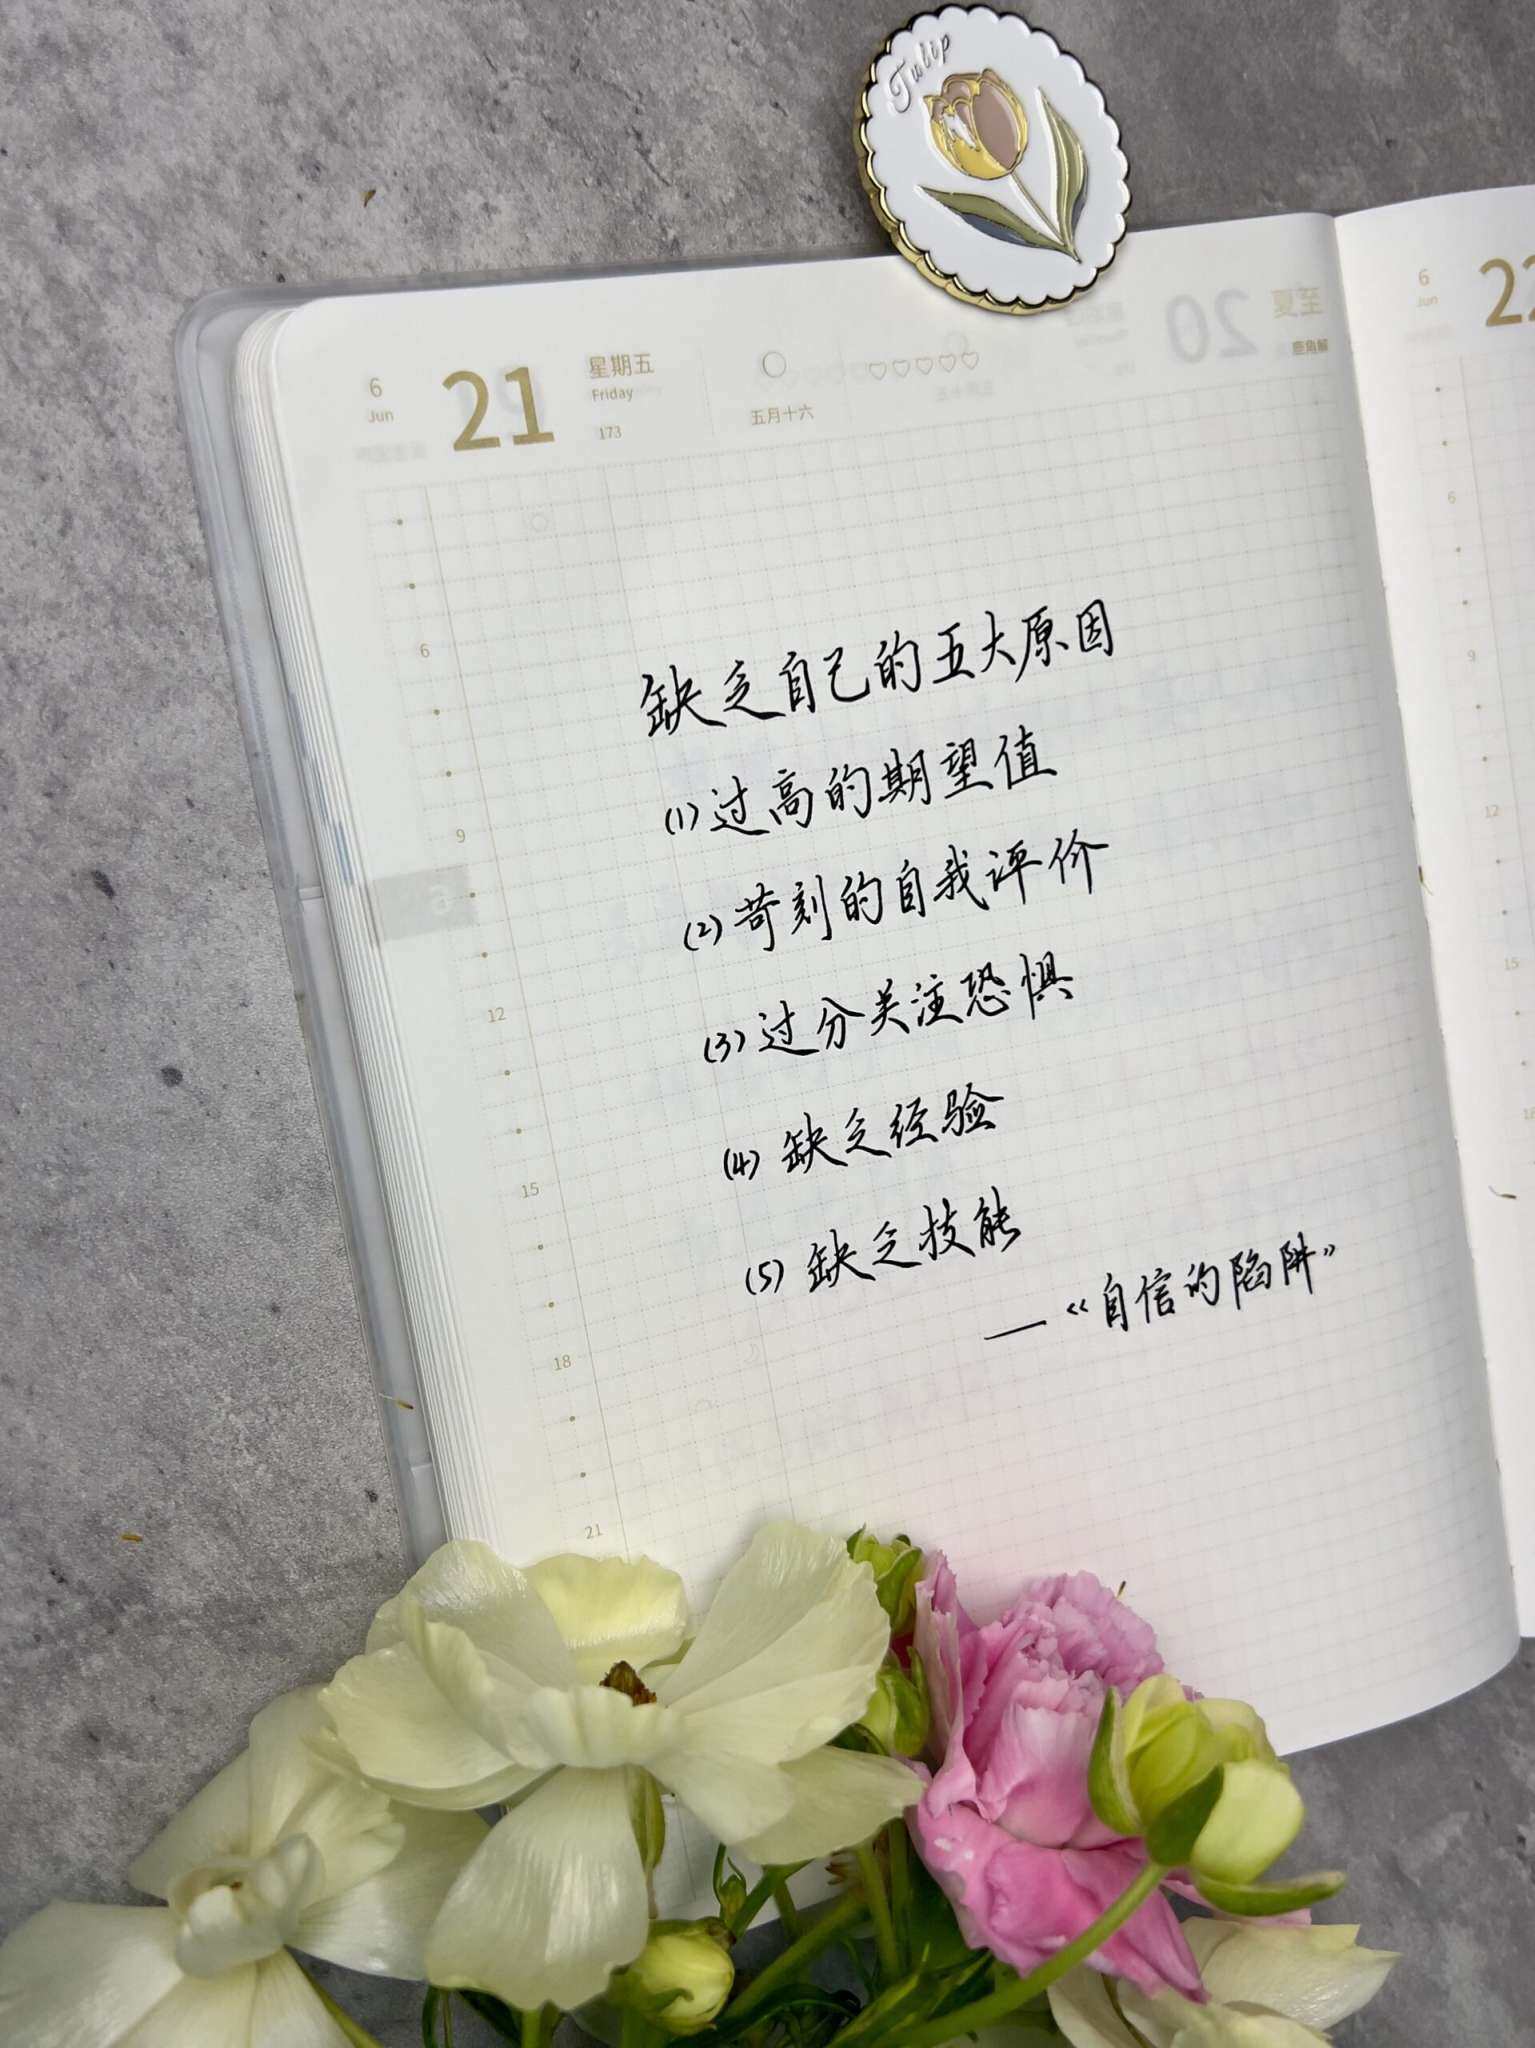 Tulip
6
Jun
21
星期五
Friday
173
五月十六
20
夏至
鹿角解
6
Jun
22
缺乏自己的五大原因
(1) 过高的期望值
(2) 苛刻的自我评价
(3) 过分关注恐惧
(4) 缺乏经验
(5) 缺乏技能
—《自信的陷阱》
6
9
12
15
18
21
6
9
12
15